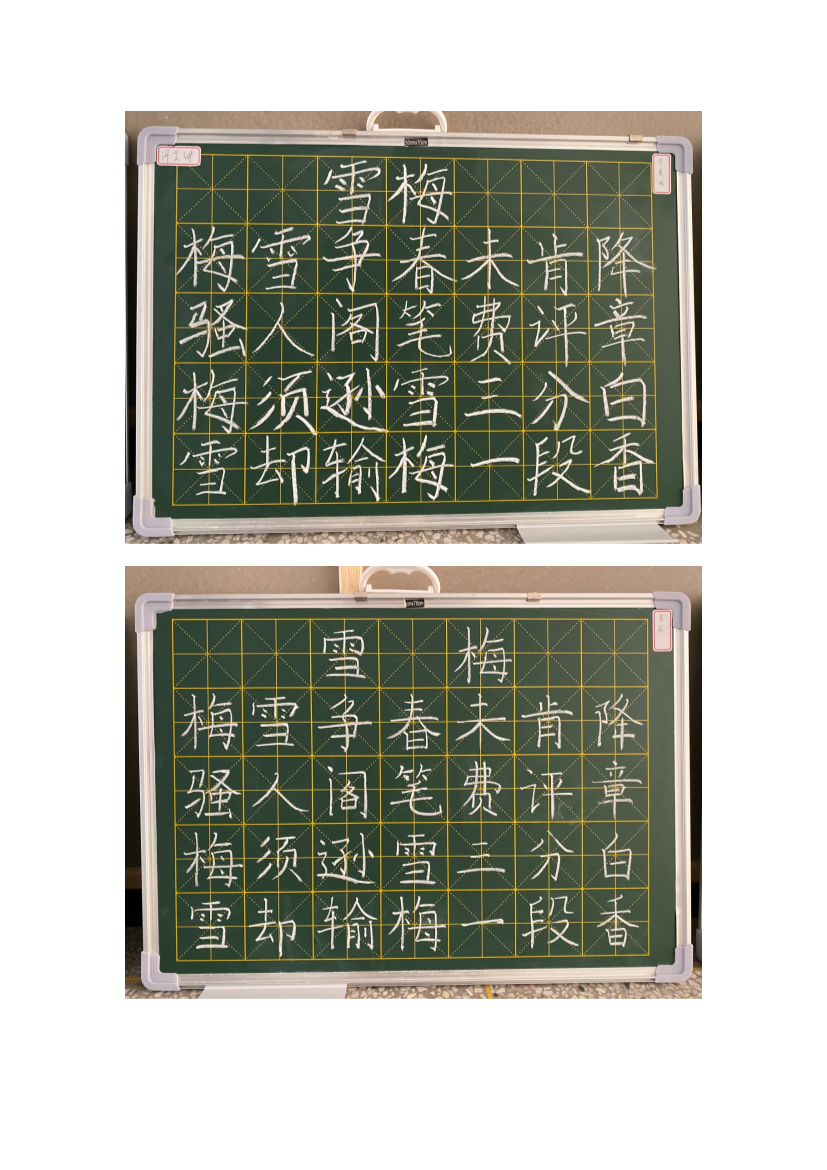 50cmx70cm
雪梅
梅雪争春未肯降
骚人阁笔费评章
梅须逊雪三分白
雪却输梅一段香
cmx70cm
雪 梅
梅雪争春未肯降
骚人阁笔费评章
梅须逊雪三分白
雪却输梅一段香